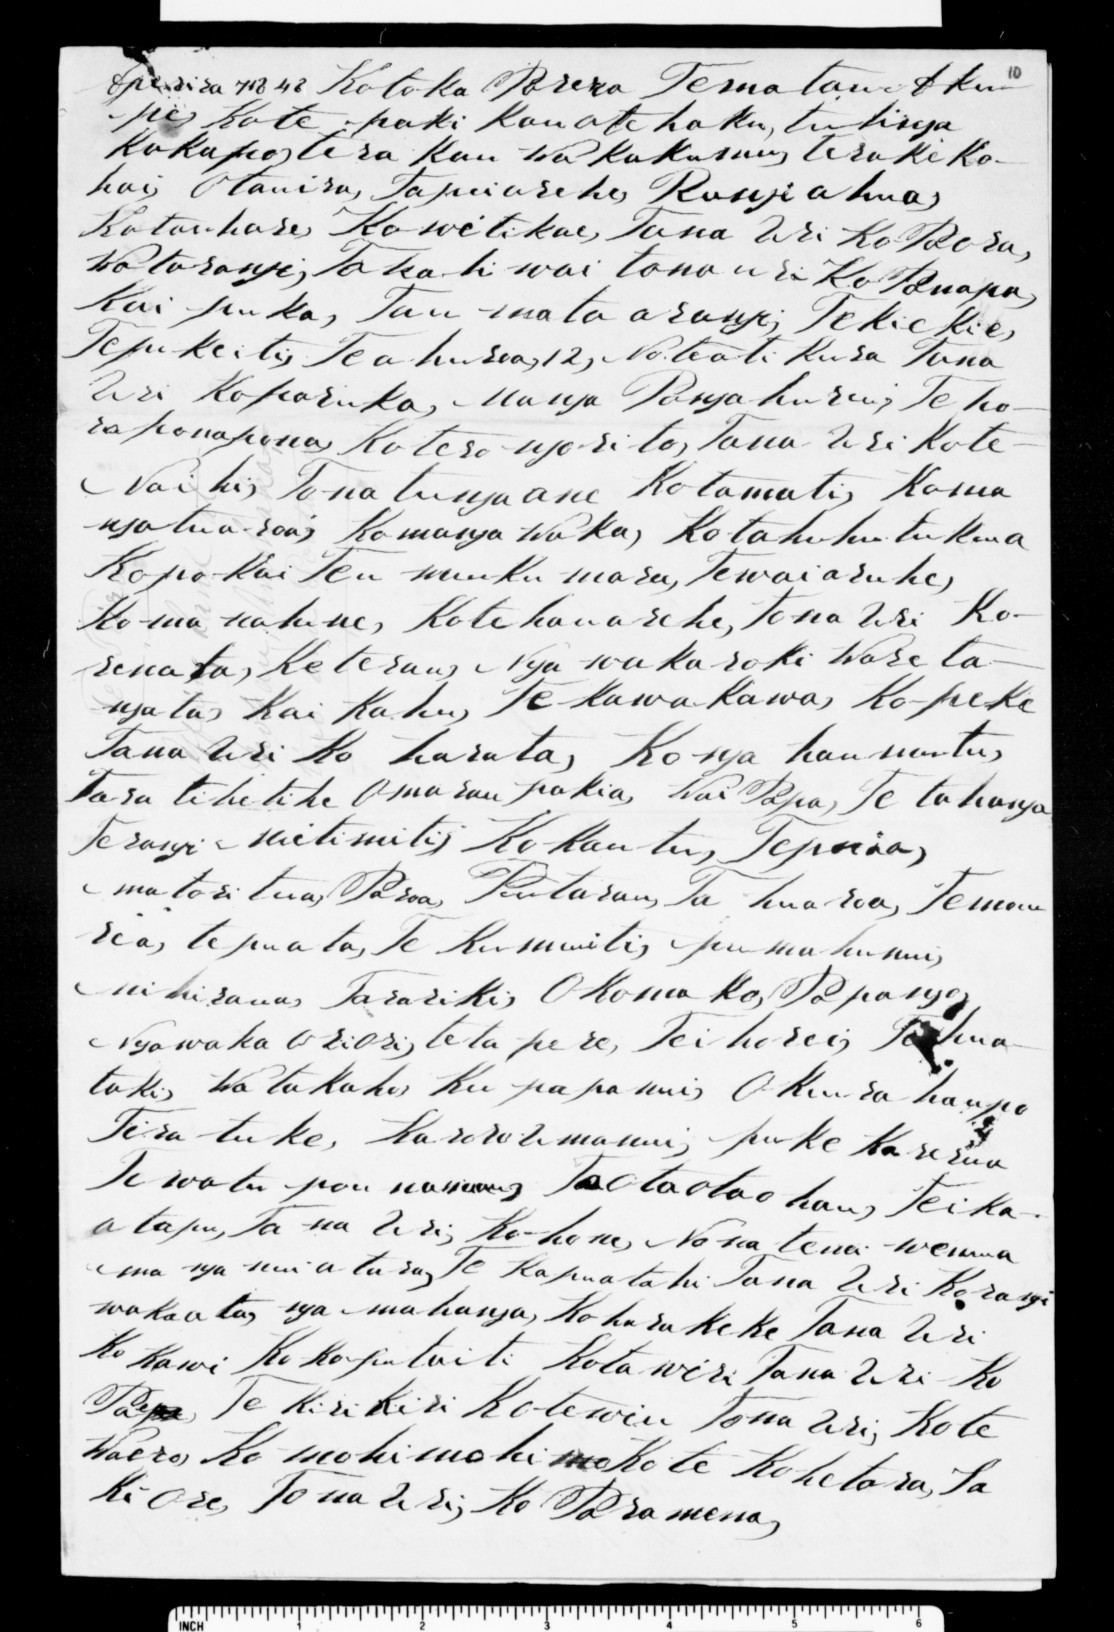 10
Koto Ka Porera Tematau
pe, Kote paki Kauatehaku, tutinga
Kakapo, tera Kau Wakakumu, terakeko-
hai, Otauira, Tapuiarehe, Rangiahua,
Kotauhare, Kowetikae, Tana Uri Ko Paora,
Wataranji, Takahi wai tona uri Ko Puapa,
Kai puka, Tau mata aranji, Tekiekie,
Tepukeiti, Teahuroa, 12, Noteati Kura Tana
Uri Koparuka, Manga Ponga hurui, Te ho-
raponapona, Kotero ngorito, Tana Uri Kote-
Naihi, Tona tungaane Kotamati, Koma
ngatuaroa, Komanga Waka, Kotahuhutukua
Kopo Kai Teu muuku mara, Tewaiaruhe,
Komanahine, Kotehauarehe, Tona Uri Ko-
renata, Keterau, Nga wakaroki Wareta-
ngata, Kai Kahu, Te Kawa Kawa, Ko peke
Tana Uri Ko harata, Ko nga haumutu,
Tara tihetihe Omarau pakia, Wai Papa, Te tahanga
Terangi mitimiti, Ko Kautu, Tepuia,
matori tua, Paroa, Putarau, Ta huaroa, Temau
reia, tepuata, Te Kumuiti, pumahunui,
mihiraua, Tarariki, Okomako, Papango,
Ngawaka Oriori, tetapere, Teihorei, Tehua-
taki, Watakaho, Ku papanui, Okura haupo
Tiratuke, Karoro Umanui, puke Karerua
Te watu pou namu, Taotaotao hau, Teika-
atapu, Ta na Uri, Ko hone, Nona tena wenua
ma nga nui atura, Te Kapuatahi Tana Uri Korangi
wakaata, nga mahanga, Koharakeke Tana Uri
Ko Kawi Ko Koputaiti Kotawiri Tana Uri Ko
Te Kirikiri Kotewiu Tona Uri, Kote
Waero, Ko mohimohi Kote Kohetara, Ta
Ki Ore, Tona Uri, Ko Paramena,
INCH 1 2 3 4 5 6